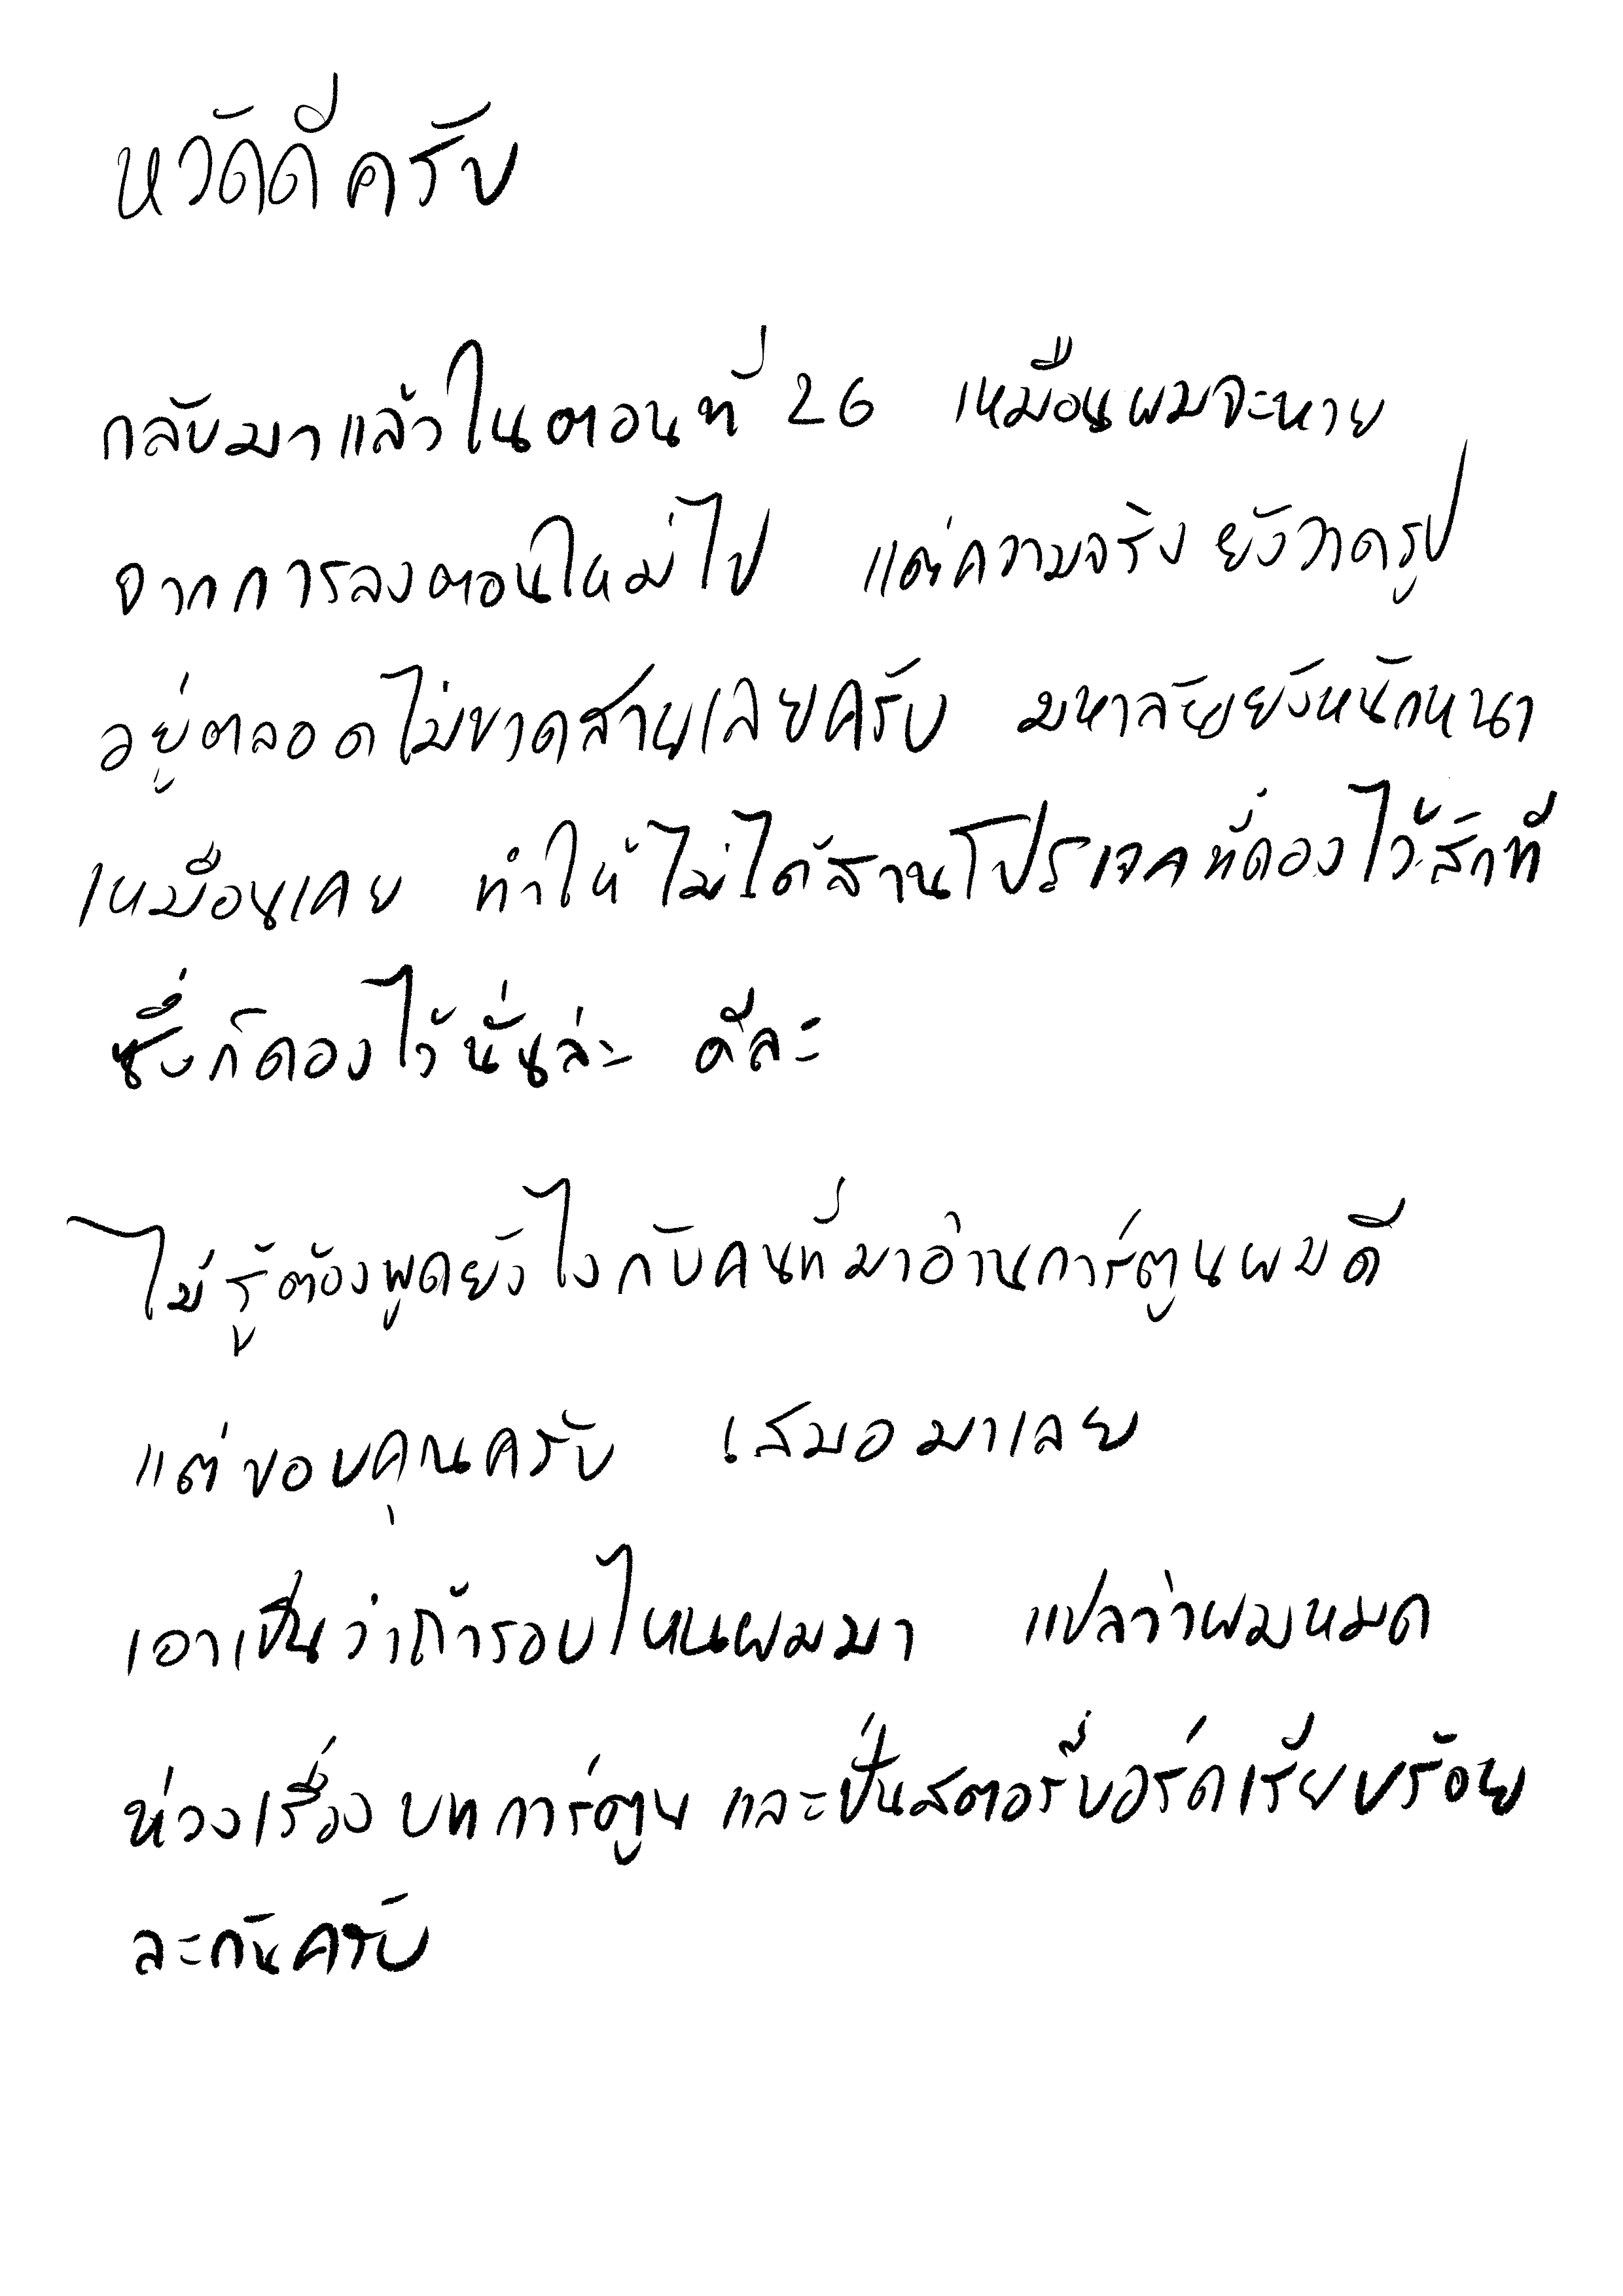 หวัดดีครับ
กลับมาแล้วในตอนที่ 26 เหมือนผมจะหาย
จากการลงตอนใหม่ไป แต่ความจริง ยังวาดรูป
อยู่ตลอดไม่ขาดสายเลยครับ มหาลัยยังหนักหนา
เหมือนเคย ทำให้ไม่ได้สานโปรเจคที่ดองไว้สักที
ซึ่งก็ดองไว้นั่นล่ะ ดีละ
ไม่รู้ต้องพูดยังไงกับคนที่มาอ่านการ์ตูนผมดี
แต่ขอบคุณครับ เสมอมาเลย
เอาเป็นว่าถ้ารอบไหนผมมา แปลว่าผมหมด
ห่วงเรื่องบทการ์ตูน และปั่นสตอรี่บอร์ดเรียบร้อย
ละกันครับ